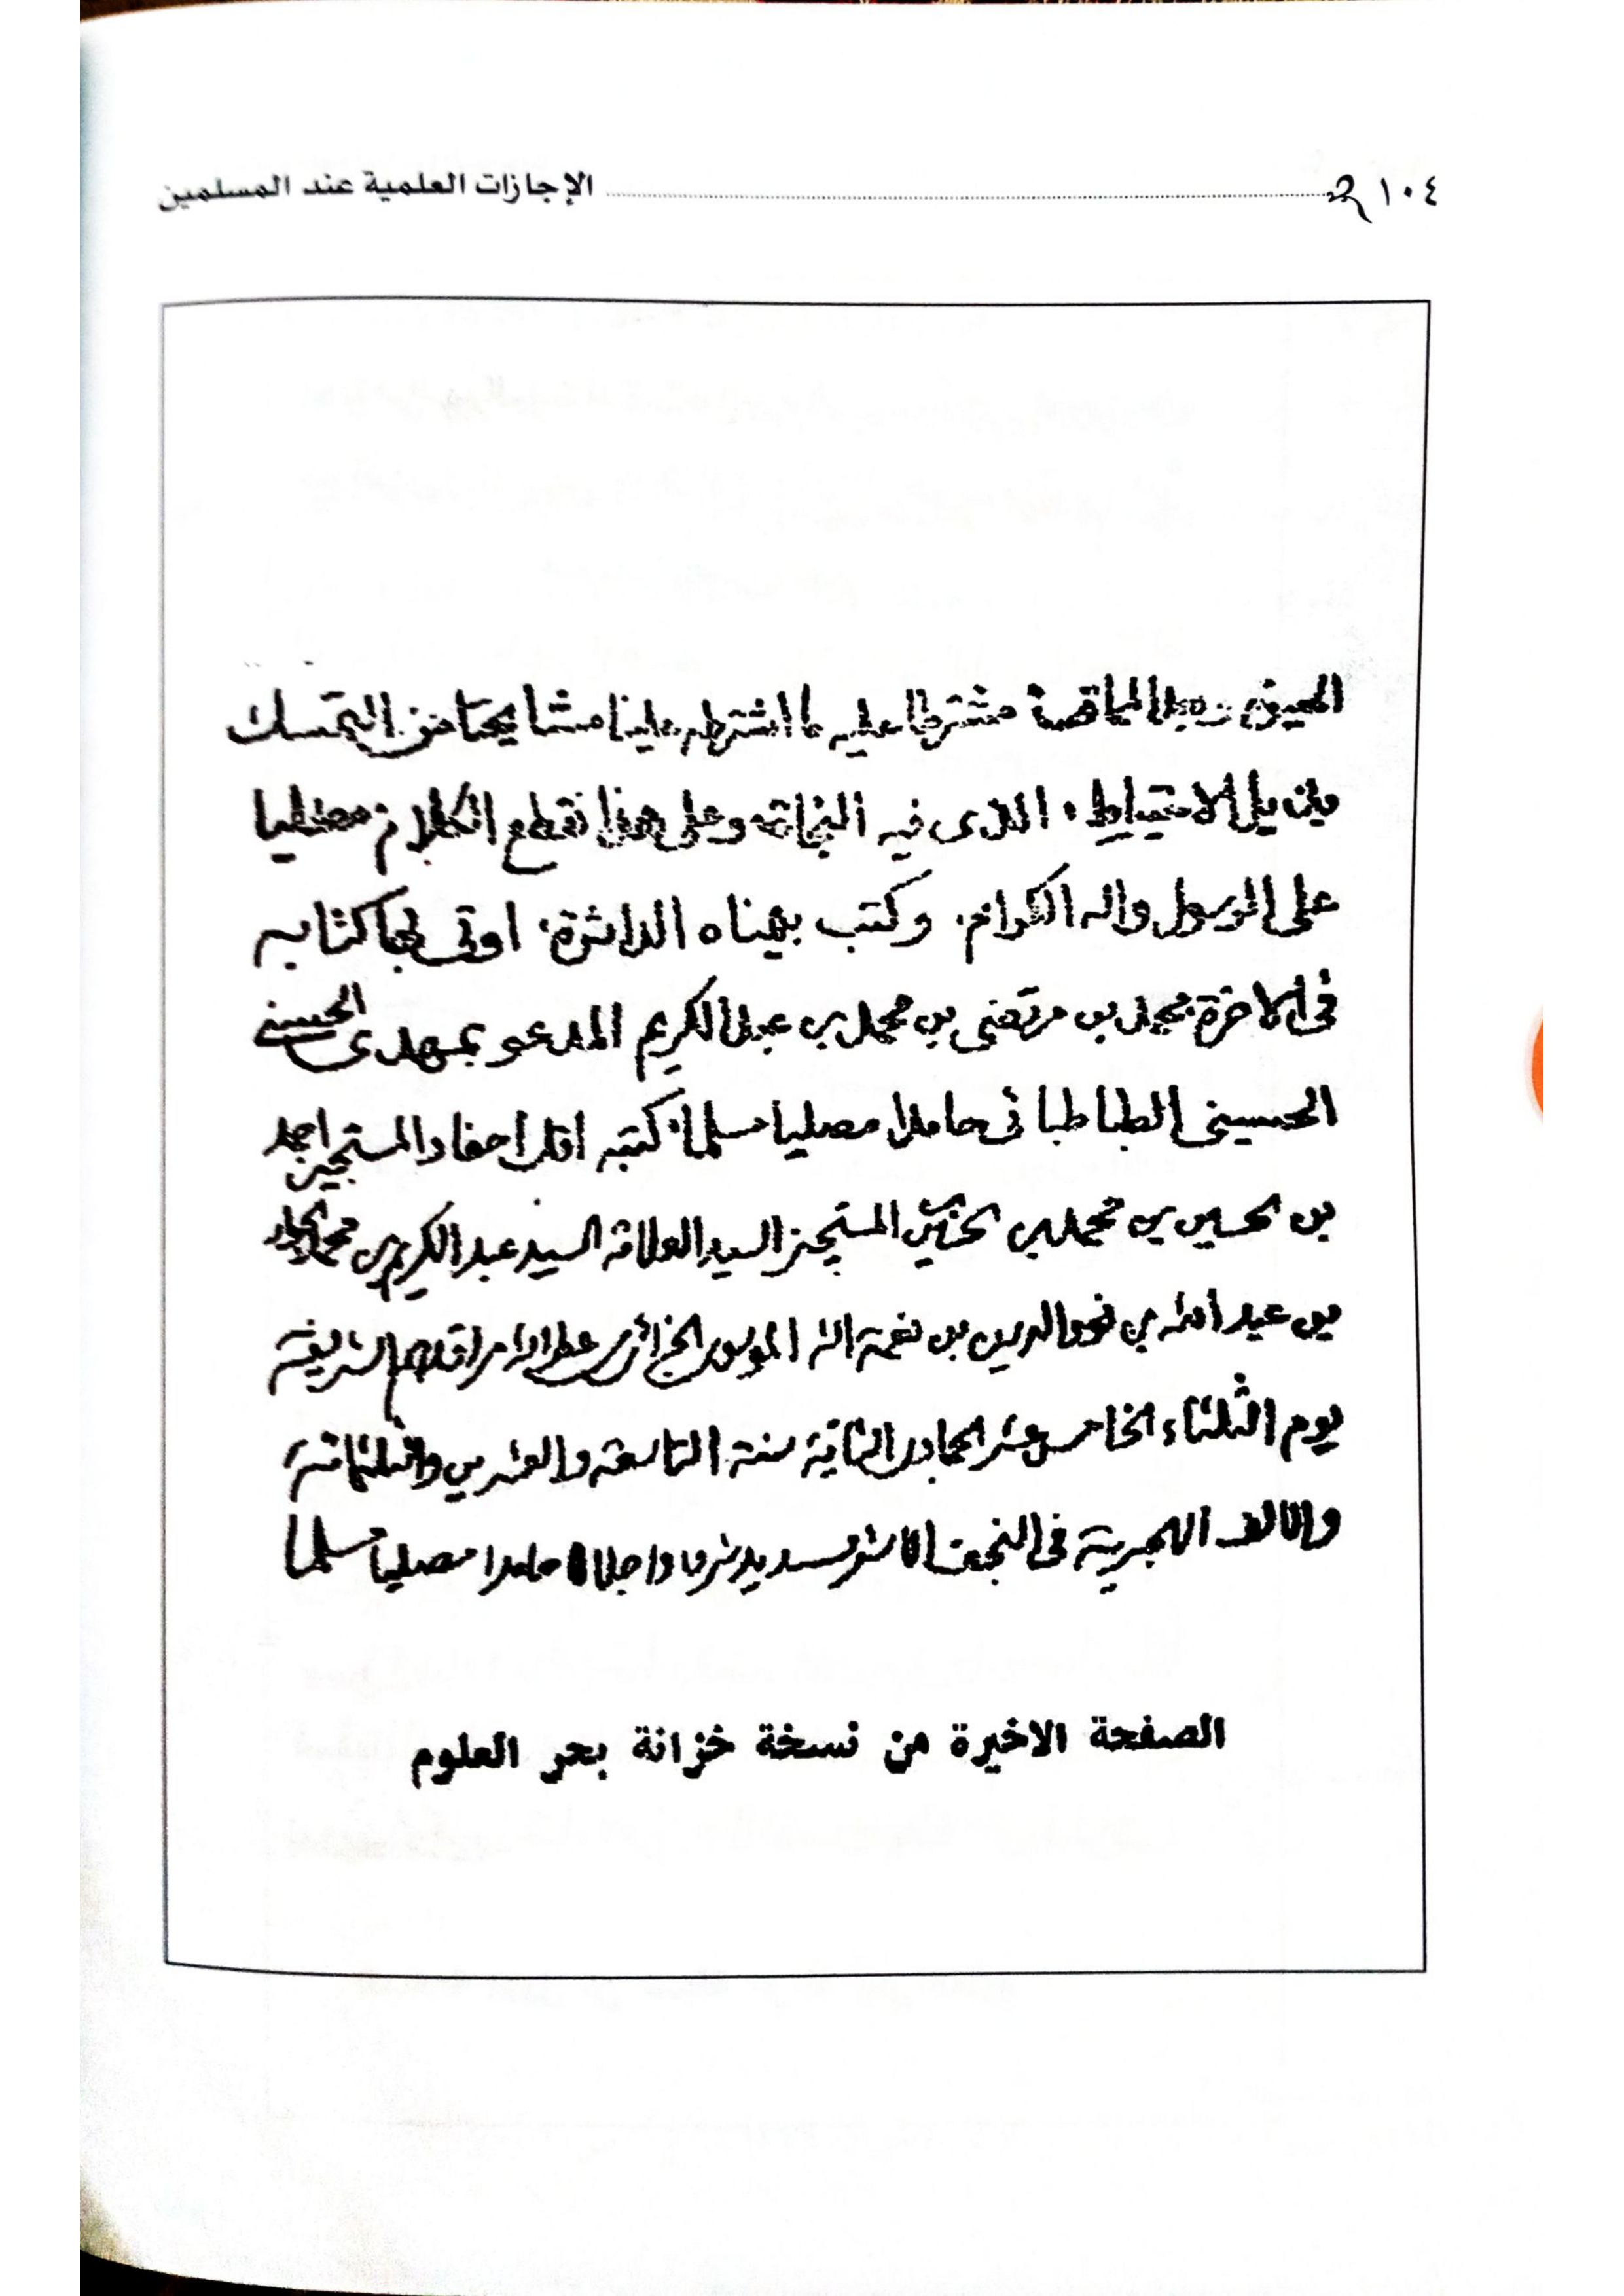 ١٠٤ الإجازات العلمية عند المسلمين
مشترطا عليه ما اشترط علينا مشايخنا من التمسك
بذيل الاحتياط، الذى فيه النجاة، وعلى هذا نقطع الكلام، مصليا
على الرسول واله الكرام. وكتب بيمناه الداثرة، اوتى بها كتابه
فى الاخرة، محمد بن مرتضى بن محمد بن عبد الكريم المدعو بمهدى الحسنى
الحسينى الطباطبائى حامدا مصليا مسلما، كتبه اقل احفاد المستجيز احمد
بن حسين بن محمد بن المستجيز السيد العلامة السيد عبد الكريم بن محمد الجواد
بن عبد الله بن نور الدين بن نعمة الله الموسوى الجزائرى عطر الله مراقدهم الشريفة
يوم الثلثاء الخامس عشر الجمادى الثانية سنة التاسعة والعشرين والثلثمائة
والالف الهجرية فى النجف الاشرف حامدا مصليا مسلما
الصفحة الاخيرة من نسخة خزانة بحر العلوم